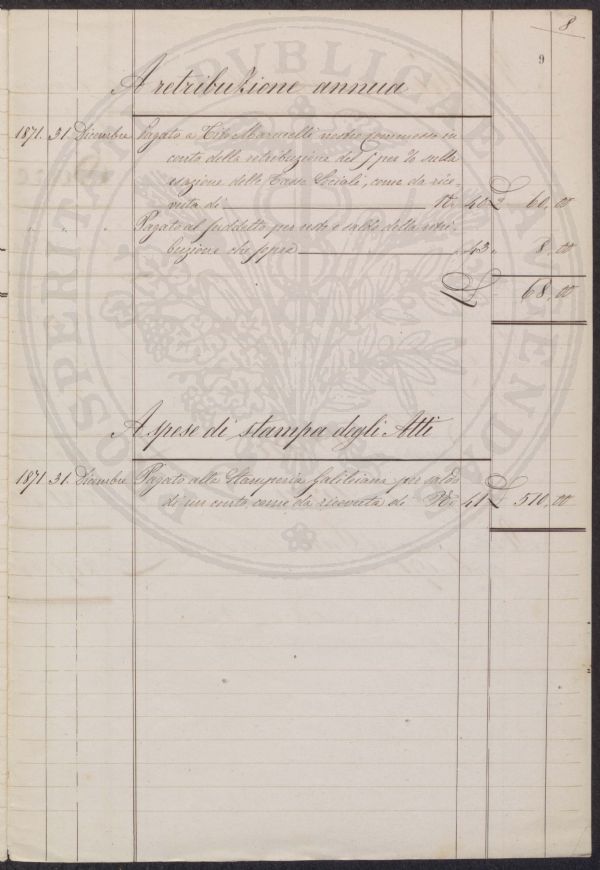 8
9
A retribuzione annua
1871. 31. Dicembre Pagato a Tito Marucelli nostro commesso in
conto della retribuzione del 5 per % sulla
esazione delle Tasse Sociali, come da rice-
vuta di N: 40 £ 60,00
" " " Pagato al suddetto per resto e saldo della retri-
buzione che sopra " 43 " 8,00
£ 68,00
A spese di stampa degli Atti
1871 31. Dicembre Pagato alla Stamperia Galileiana per saldo
di un conto, come da ricevuta di N: 41 £ 510,00
PROSPERITATI PVBLICAE AVGENDAE